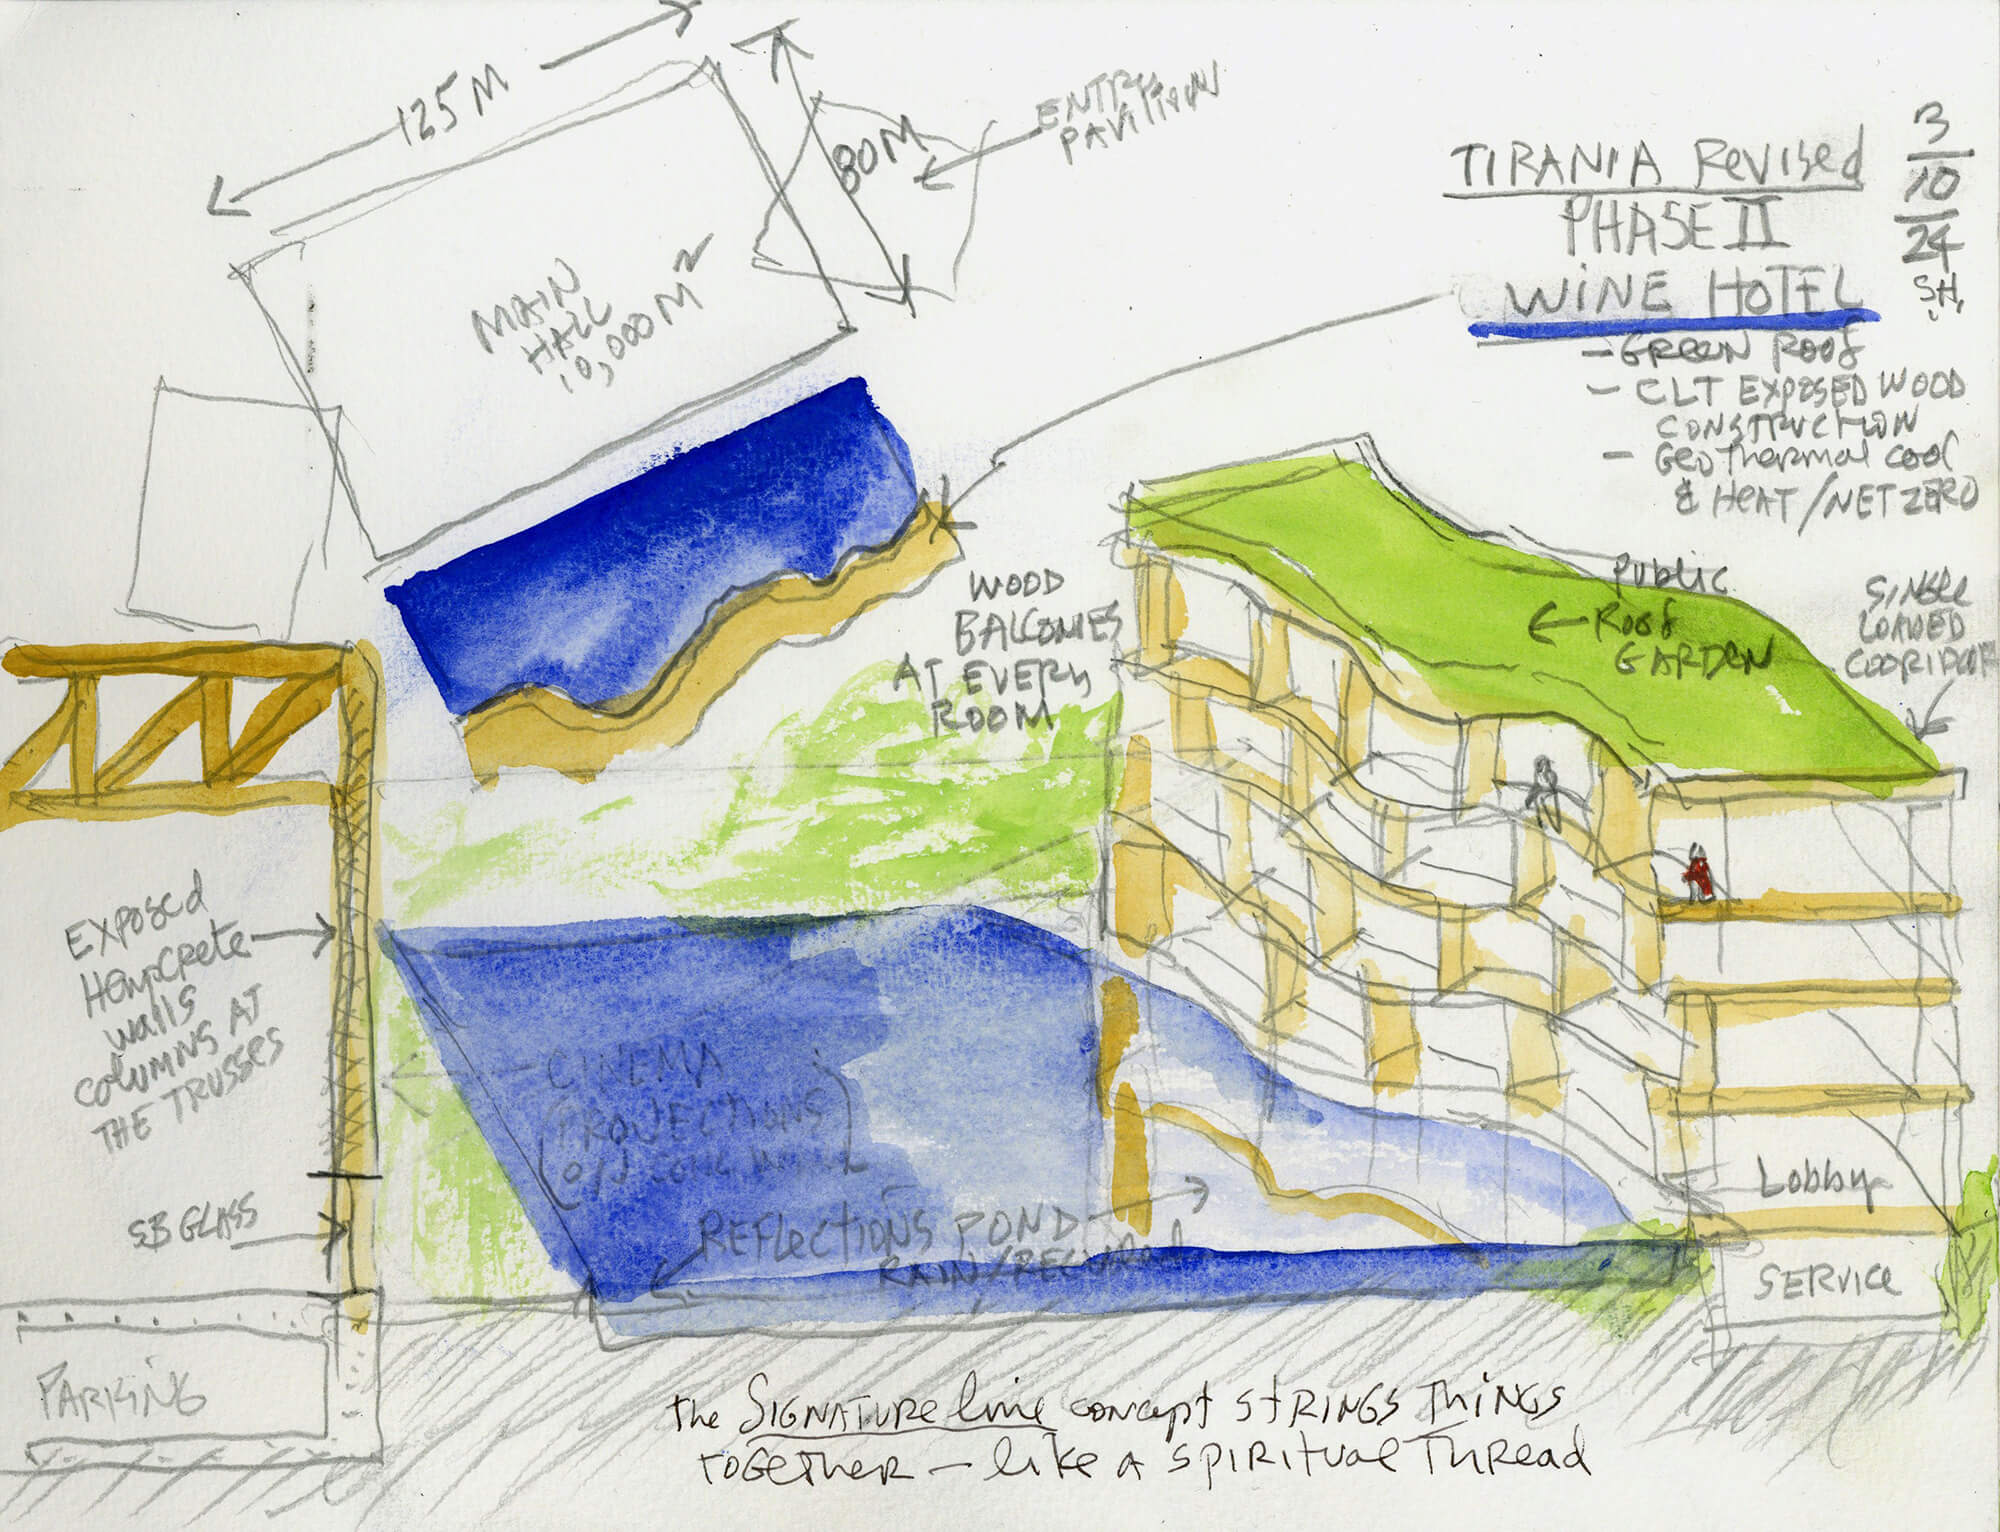 125 M
80 M
ENTRY
PAVILION
MAIN
HALL
10,000 M²
TIRANIA REVISED
PHASE II
WINE HOTEL
3/10/24
S.H.
- GREEN ROOF
- CLT EXPOSED WOOD
CONSTRUCTION
- GEOTHERMAL COOL
& HEAT / NET ZERO
WOOD
BALCONIES
AT EVERY
ROOM
PUBLIC
ROOF
GARDEN
SINGLE
LOADED
COORIDOR
EXPOSED
HEMPCRETE
WALLS
COLUMNS AT
THE TRUSSES
GLASS
PARKING
- CINEMA
PROJECTIONS
REFLECTIONS POND
RAIN /
LOBBY
SERVICE
the SIGNATURE line concept STRINGS THINGS
TOGETHER - like A SPIRITUAL THREAD